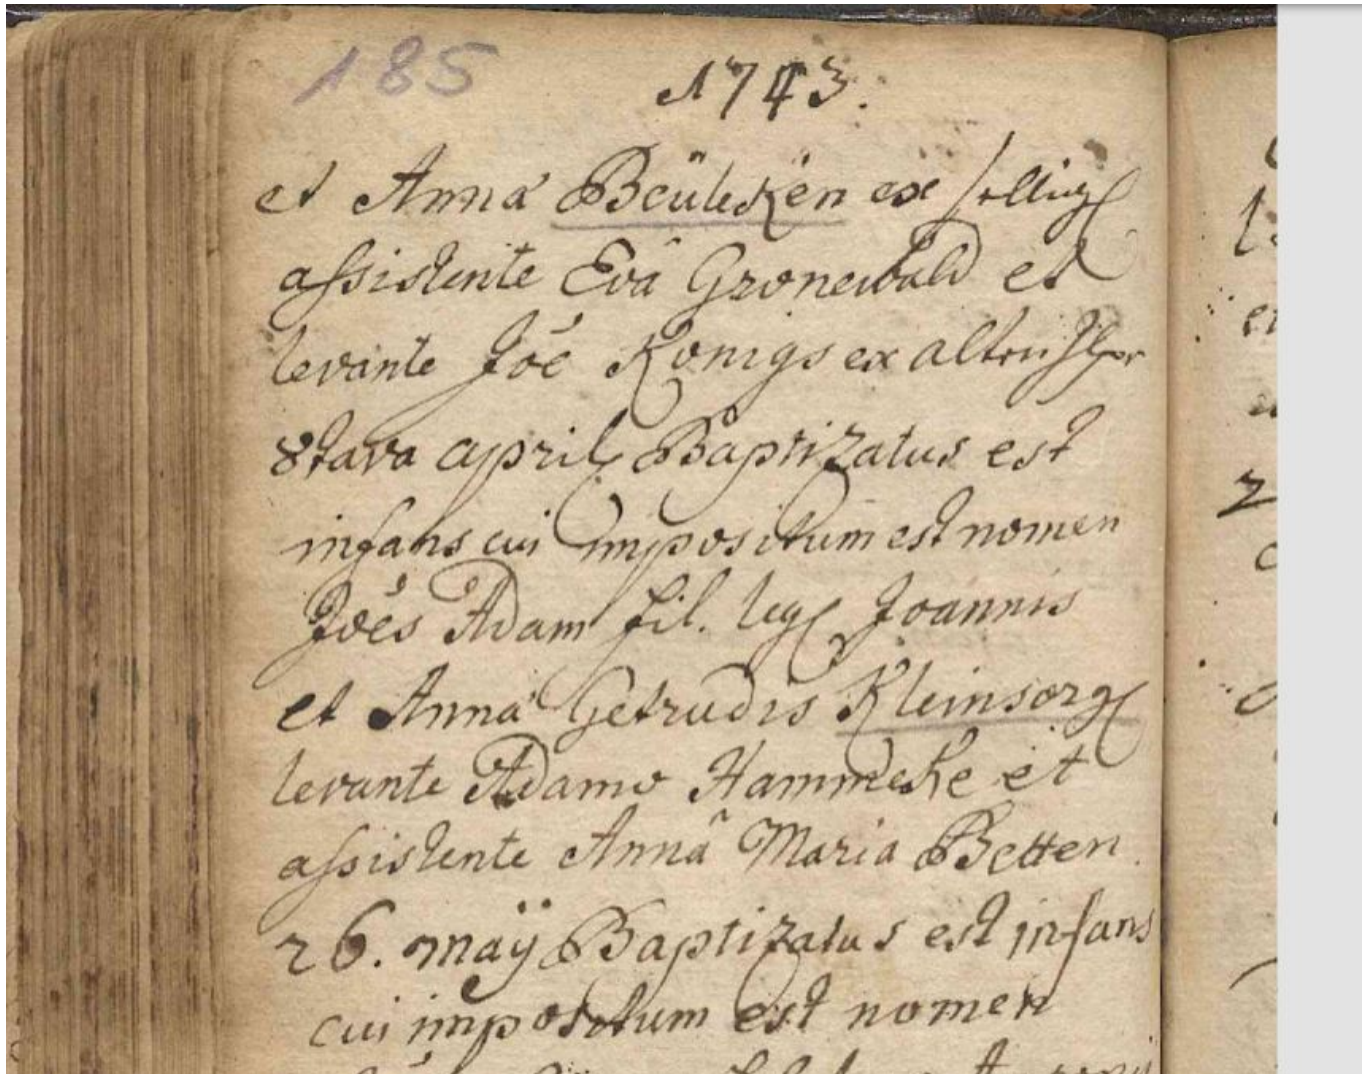 185
1743.
et Anna Beüleken ex
assistente Evâ Gronewald et
levante Joē Konigs ex
8tava april Baptizatus est
infans cui impositum est nomen
Joēs Adam fil. leg Joannis
et Anna Getrudis Kleinsorg
levante Adamo Hammeke et
assistente Annâ Maria Betten.
26. maÿ Baptizatus est infans
cui impositum est nomen